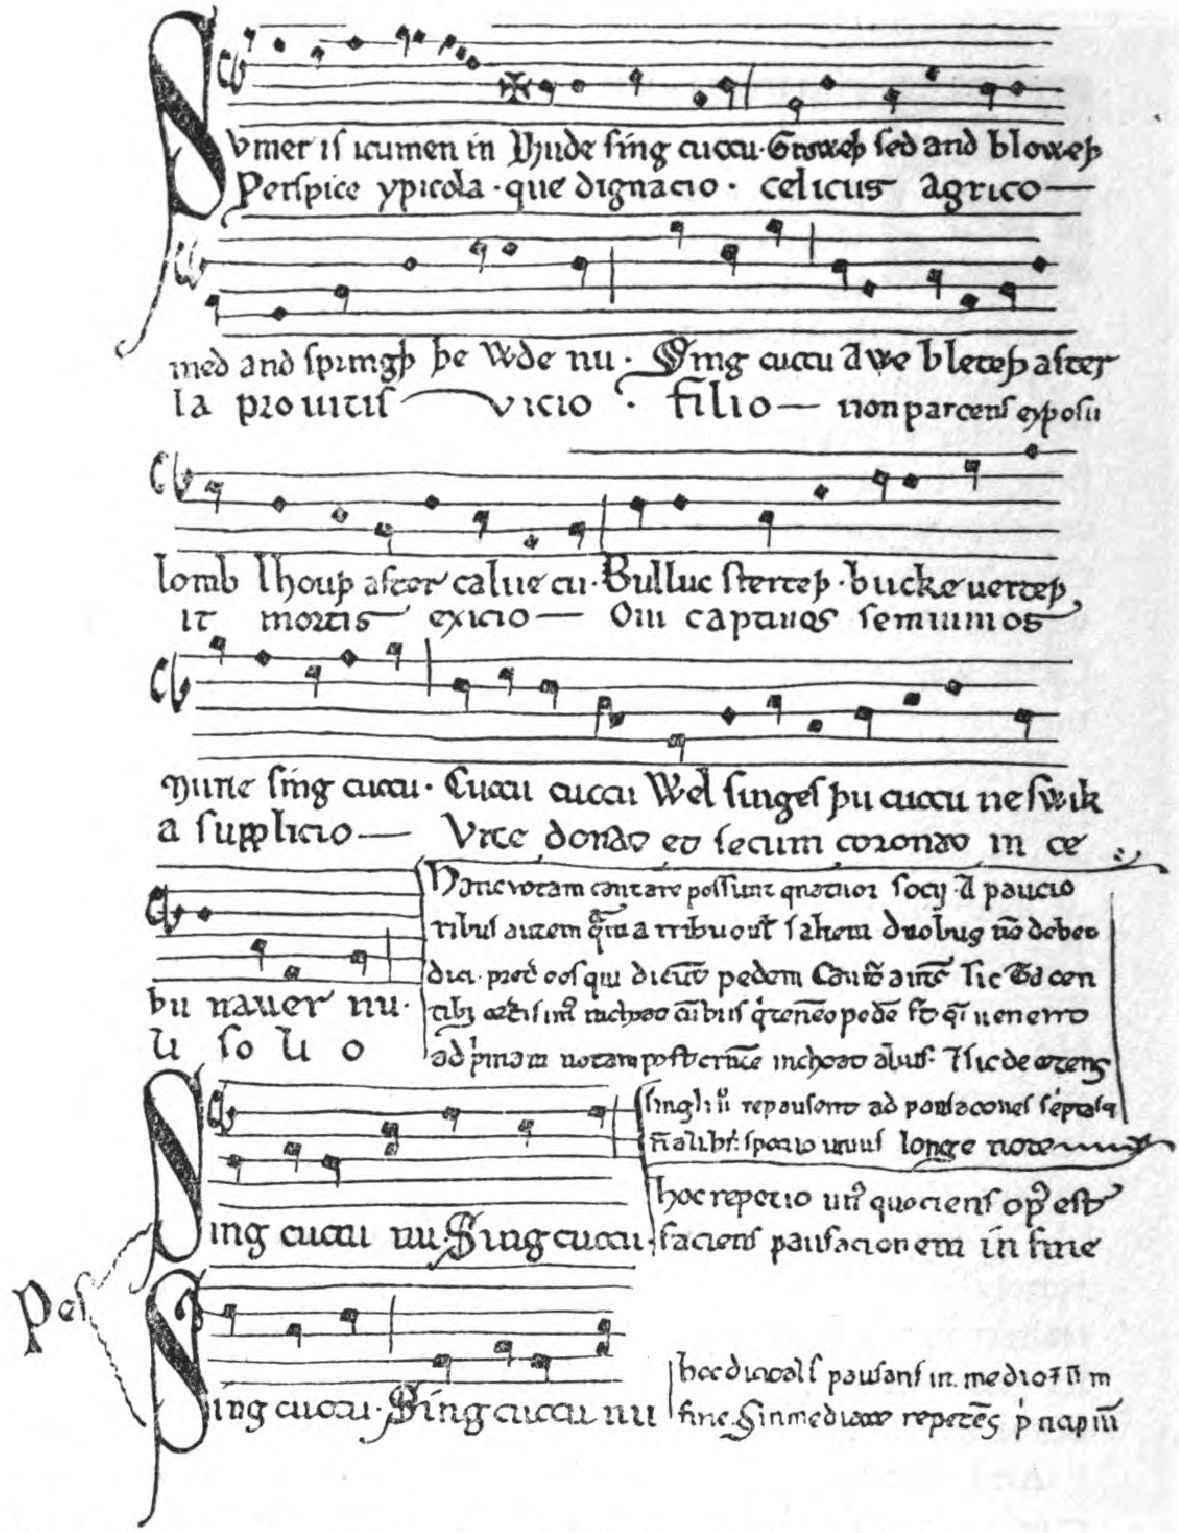 Svmer is icumen in Lhude sing cuccu. Groweþ sed and bloweþ
Perspice xpicola. que dignacio. celicus agrico
med and springþ þe wde nu. Sing cuccu Awe bleteþ after
la pro uitis vicio. filio non parcens exposu
lomb lhouþ after calue cu. Bulluc sterteþ. bucke uerteþ
it mortis exicio Qui captiuos semiuiuos
Murie sing cuccu. Cuccu cuccu Wel singes þu cuccu ne swik
a supplicio Vite donat et secum coronat in ce
þu nauer nu.
li so li o
Hanc rotam cantare possunt quatuor socij. A paucio
ribus autem qͣm a tribus ut saltem duobus nō debet
dici. pret̄ eos qui dicūt pedem Canit̄ aut̄ sic Tacen
tibꝫ cet̄is unꝰ inchoat cū hiis qͥ tenēt pedē Et cū uenerit
ad pͥmam notam post crucē inchoat alius. ⁊ sic de cet̄is
singli ū repausent ad pausacōnes scͥptas ⁊
nō alibi. spacio unius longe note
Sing cuccu nu. Sing cuccu.
hoc repetit unꝰ quociens opꝰ est
faciens pausacionem in fine
Pes
Sing cuccu. Sing cuccu nu
hoc dicit aliꝰ pausans in medio ⁊ nō in
fine. Set immediate repetēs pͥncipiū